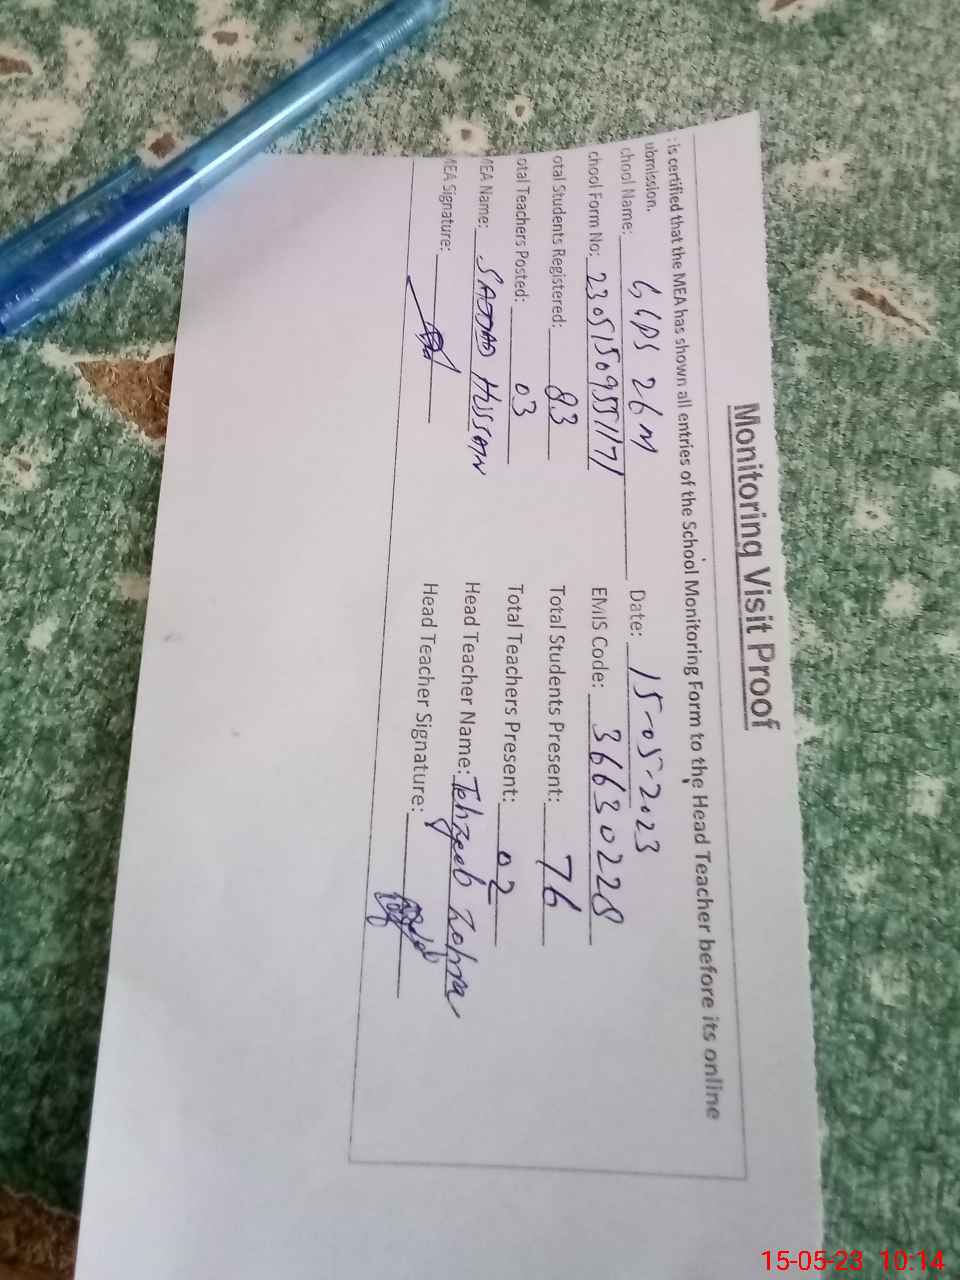 Monitoring Visit Proof
is certified that the MEA has shown all entries of the School Monitoring Form to the Head Teacher before its online
ubmission.
chool Name: GGPS 26 M Date: 15-05-2023
chool Form No: EMIS Code: 36630228
otal Students Registered: 83 Total Students Present: 76
otal Teachers Posted: 03 Total Teachers Present: 02
MEA Name: SAJJAD HUSSAIN Head Teacher Name: Tehzeeb Zohra
MEA Signature: Head Teacher Signature:
15-05-23 10:14